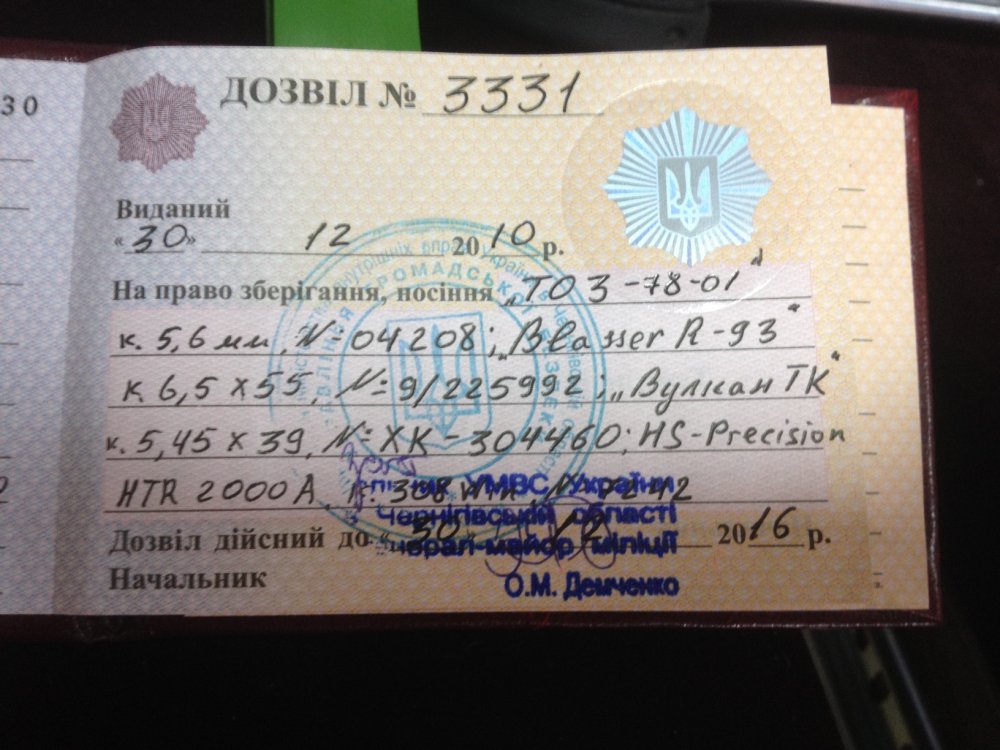 30
ДОЗВІЛ № 3331
Виданий
«30» 12 2010 р.
На право зберігання, носіння „ТОЗ-78-01"
к. 5,6 мм, №-04208; „Blasser R-93"
к. 6,5 х 55, №-9/225992; „Вулкан ТК"
к. 5,45 х 39, №-ХК-304460; HS-Precision
HTR 2000A к. 308 Win №
УМВС України
Чернігівській області
Дозвіл дійсний до «30» 2016 р.
генерал-майор міліції
Начальник
О.М. Демченко